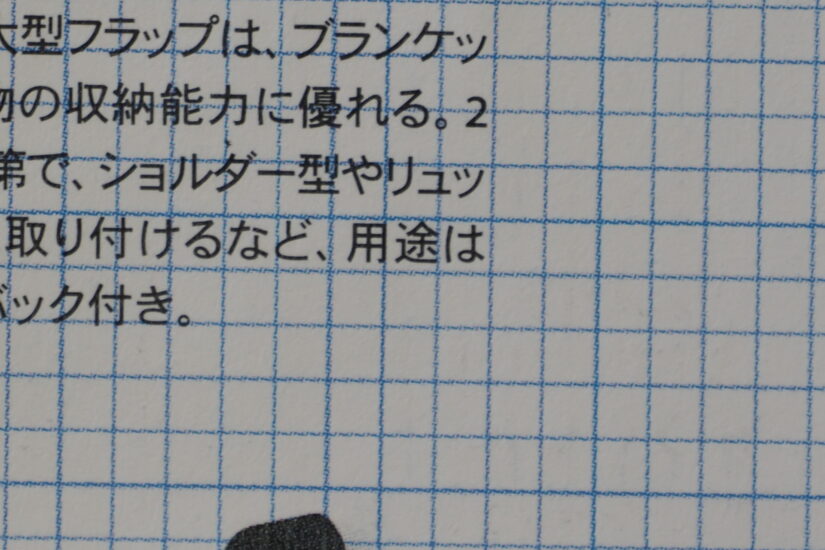 大型フラップは、ブランケッ
物の収納能力に優れる。2
第で、ショルダー型やリュッ
取り付けるなど、用途は
バック付き。